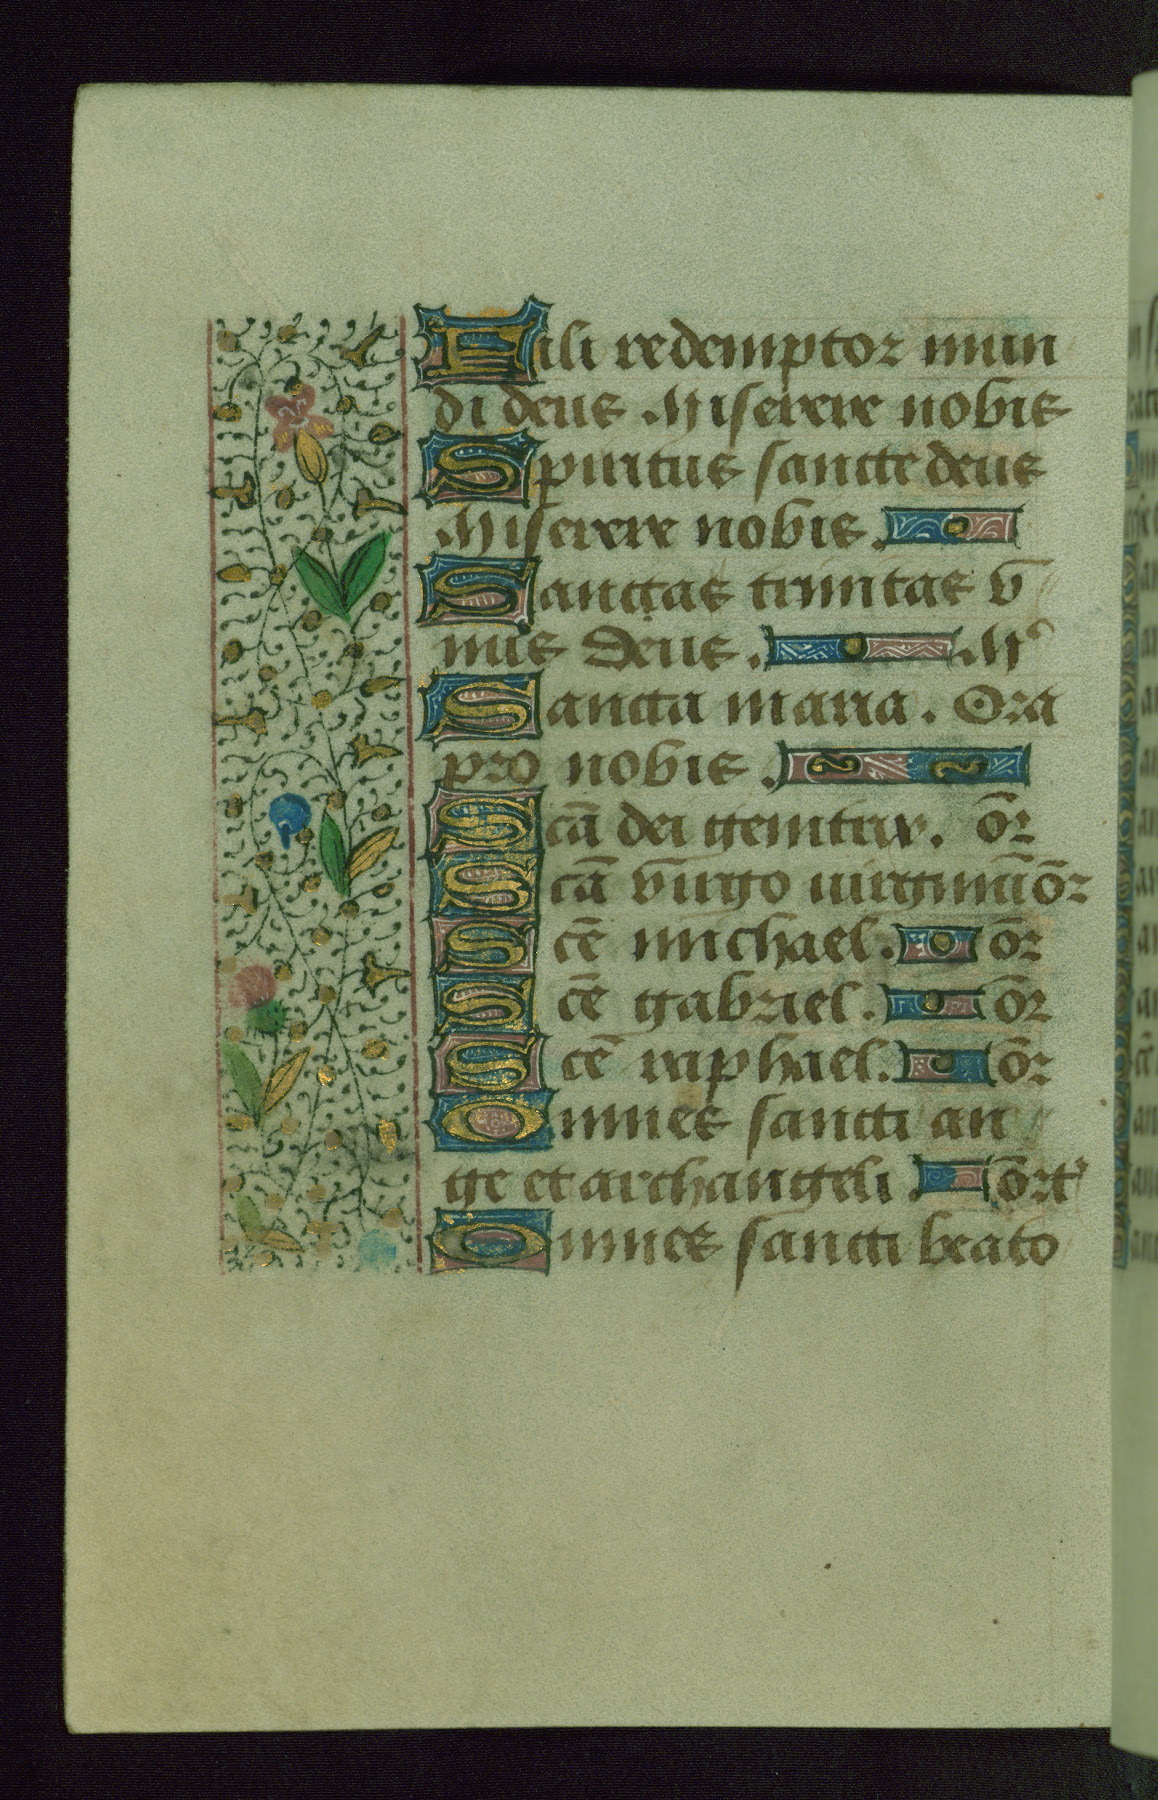 Fili redemptor mun
di deus Miserere nobis
Spiritus sancte deus
Miserere nobis.
Sanctas trinitas v
nus Deus. M
Sancta maria. Ora
pro nobis.
Scā dei genitrix. or̄
Scā virgo uirginū or̄
Scē michael. or̄
Scē gabriel. or̄
Scē raphael. or̄
Omnes sancti an
ge et archangeli. or̄t
Omnes sancti beato